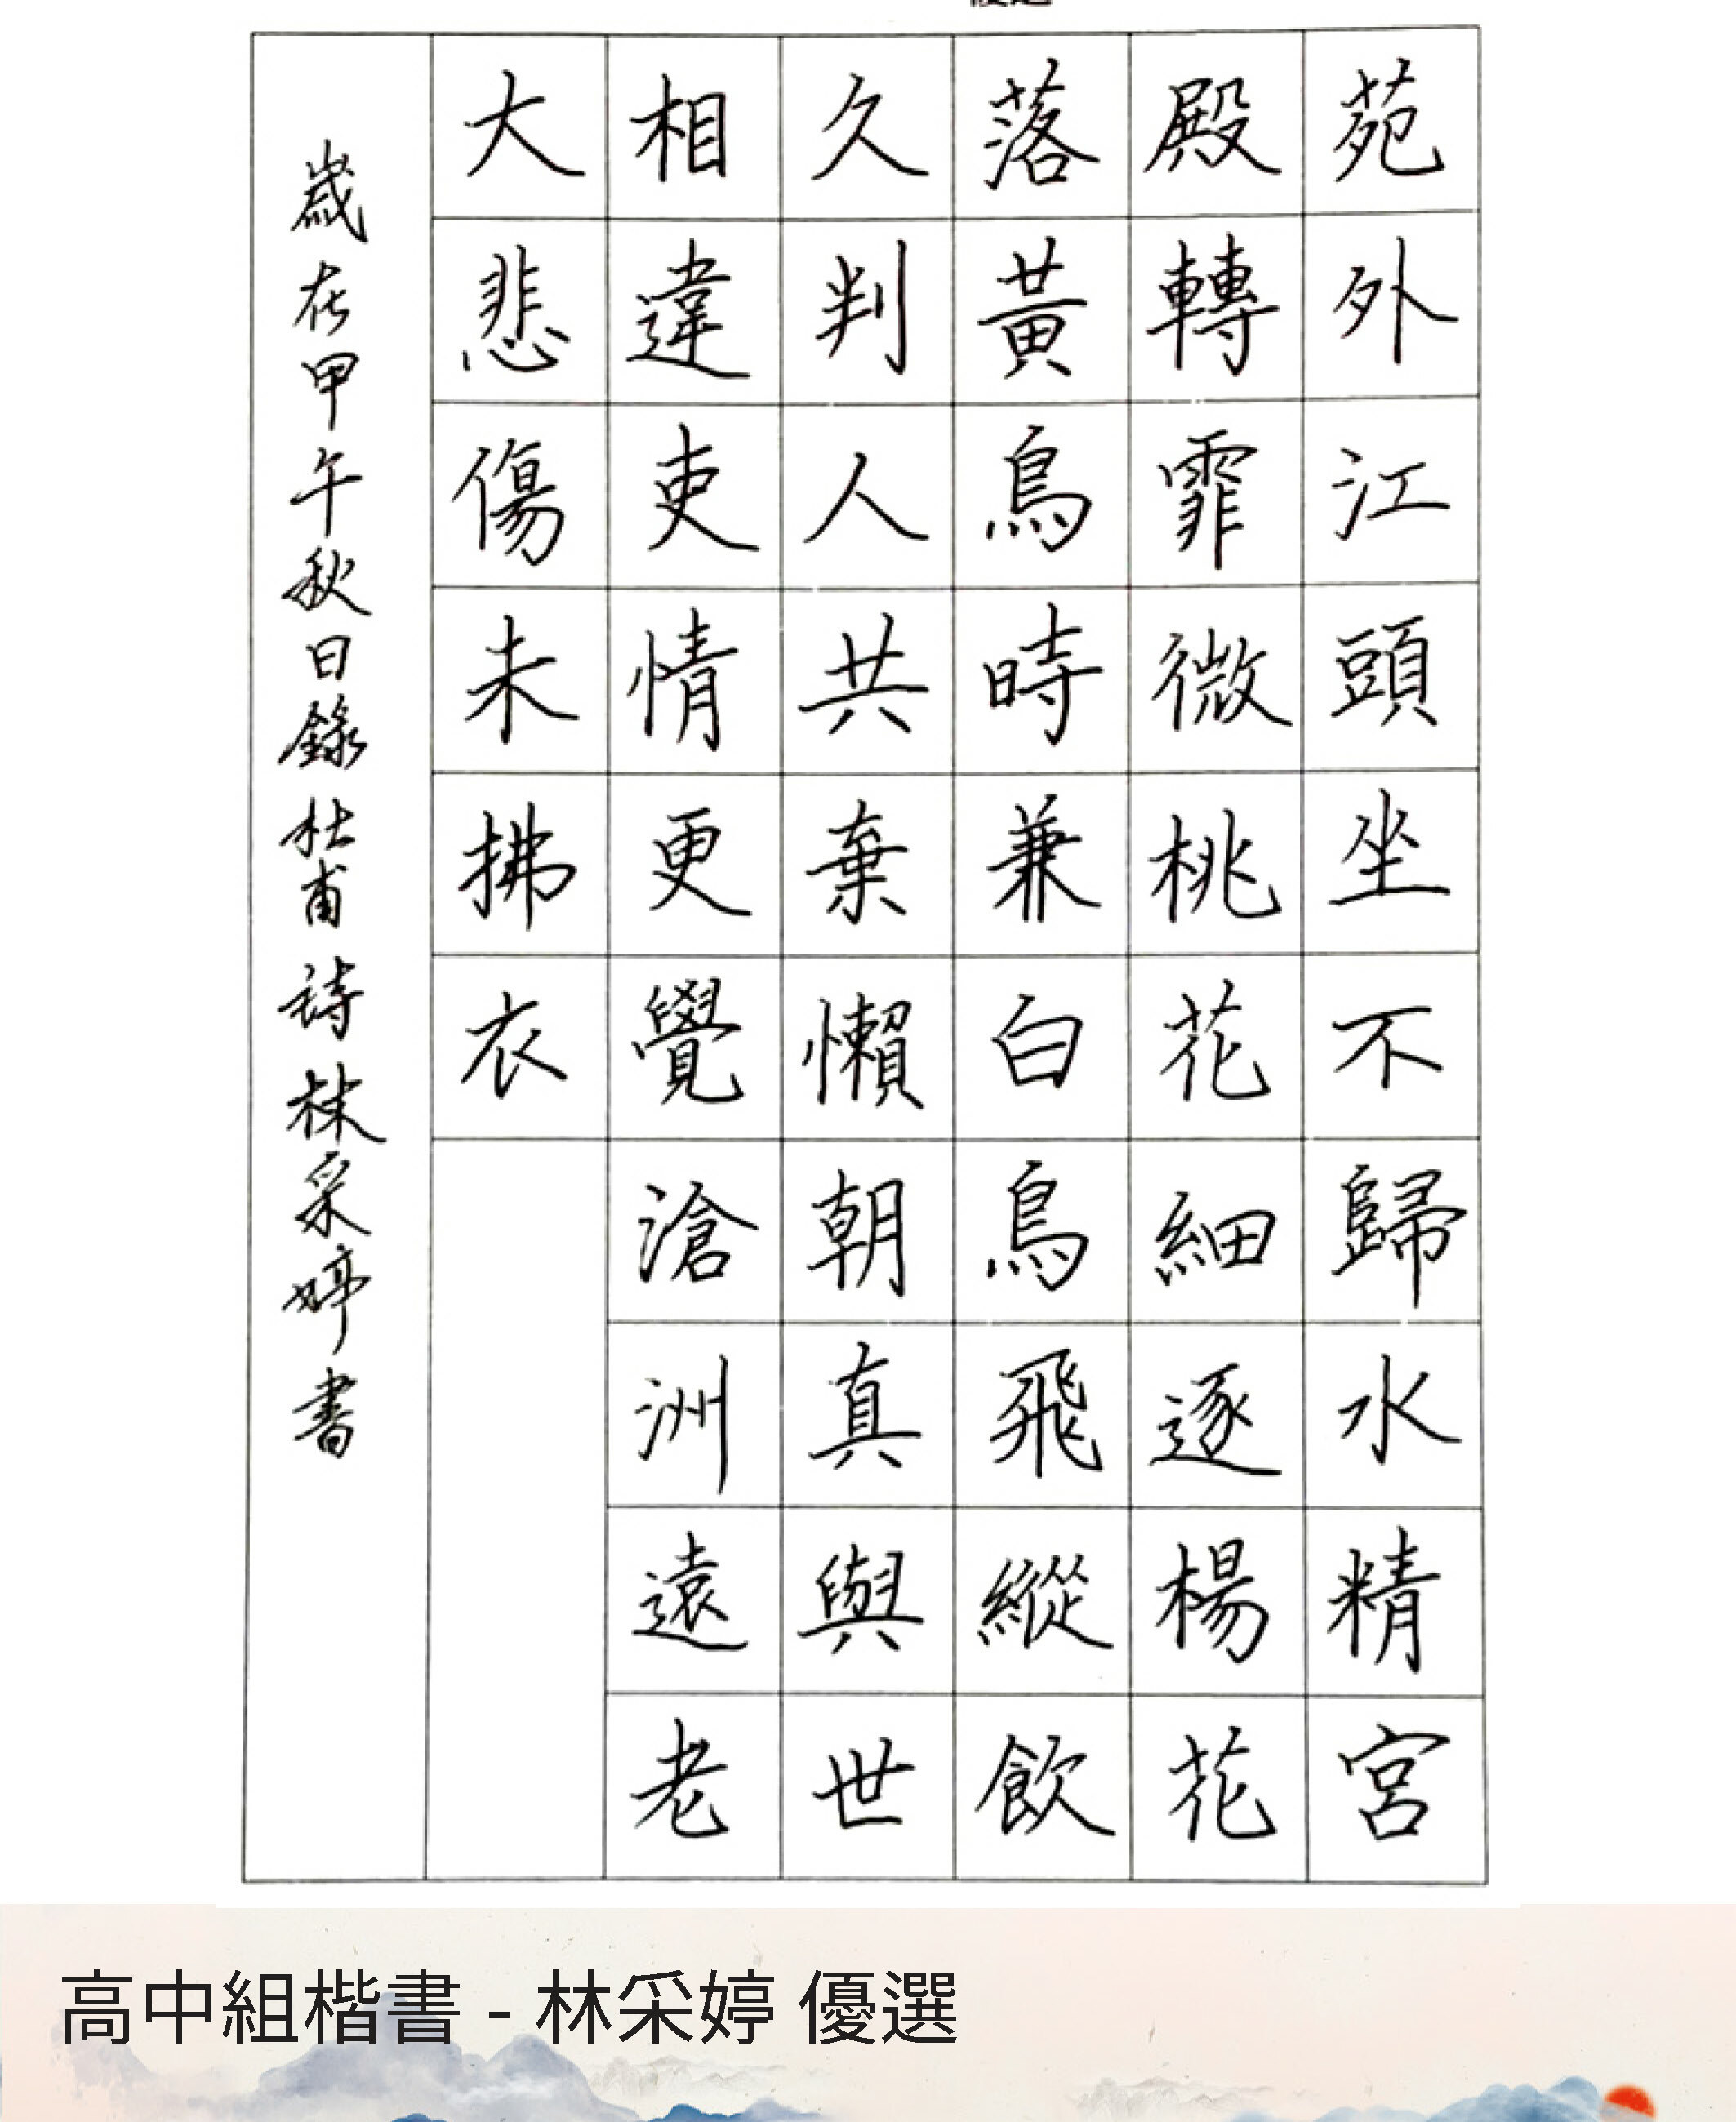 苑外江頭坐不歸水精宮
殿轉霏微桃花細逐楊花
落黃鳥時兼白鳥飛縱飲
久判人共棄懶朝真與世
相違吏情更覺滄洲遠老
大悲傷未拂衣
歲在甲午秋日錄杜甫詩林采婷書
高中組楷書 - 林采婷 優選